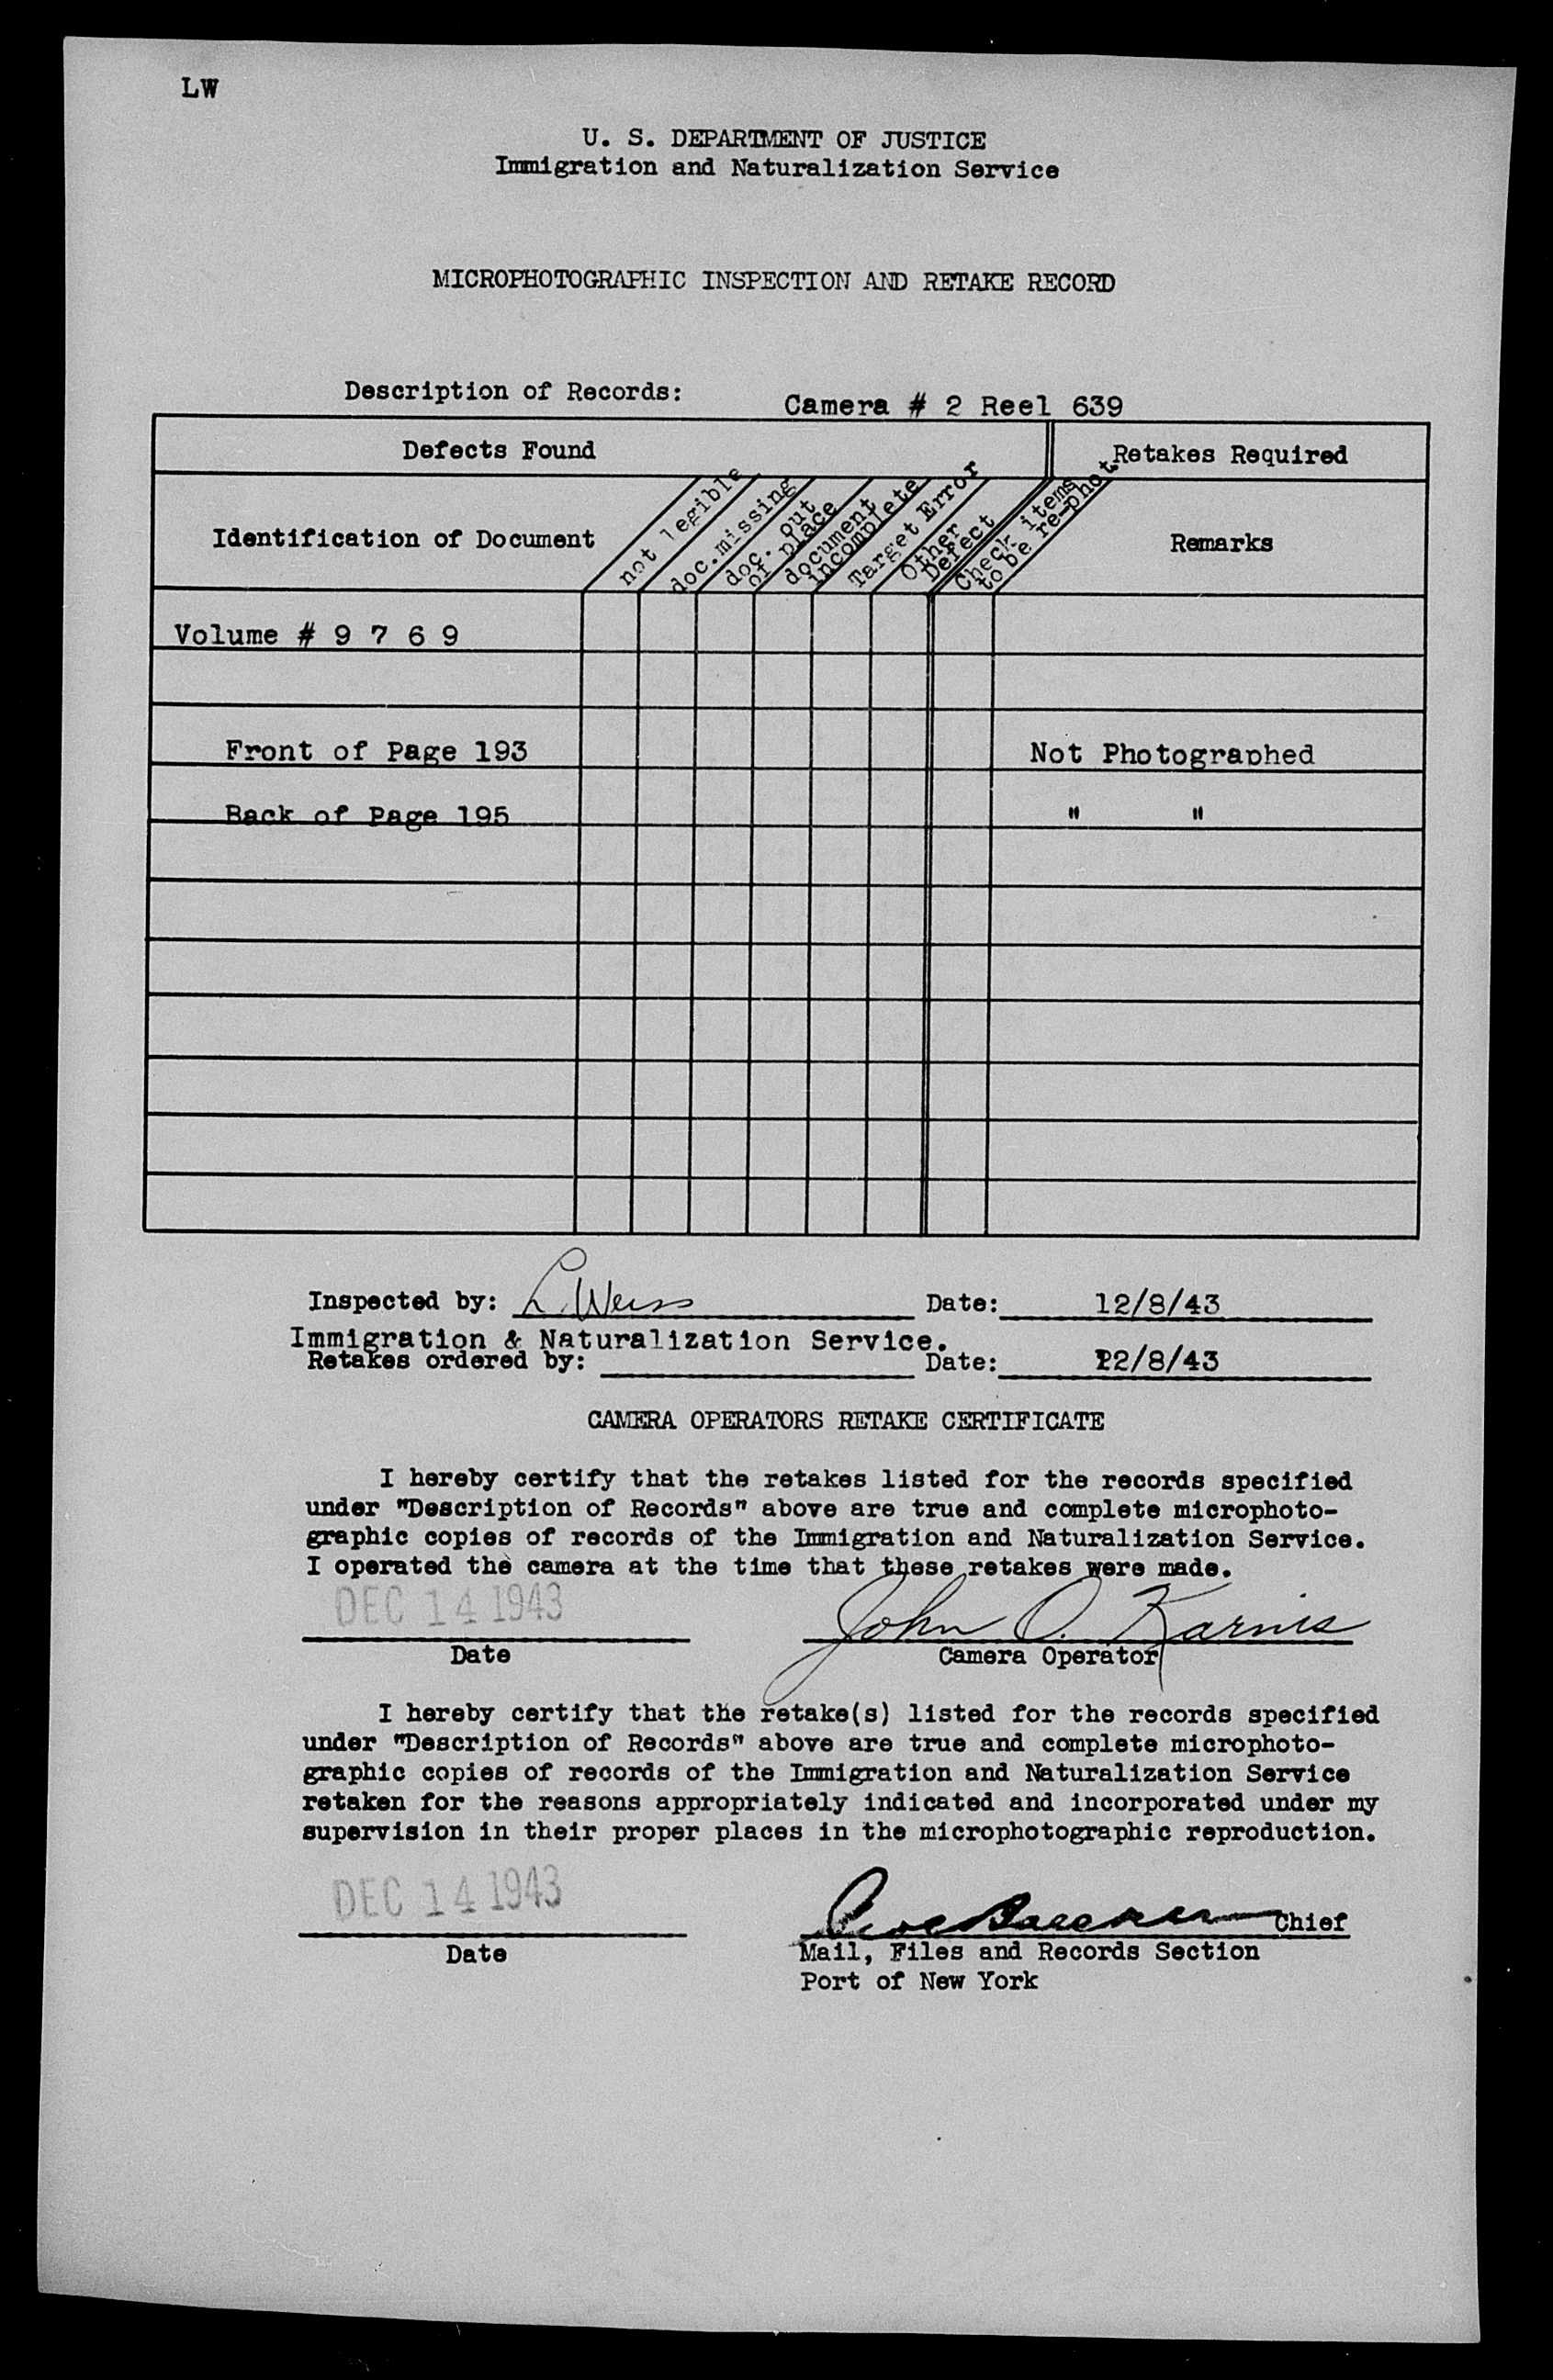 LW
U. S. DEPARTMENT OF JUSTICE
Immigration and Naturalization Service
MICROPHOTOGRAPHIC INSPECTION AND RETAKE RECORD
Description of Records: Camera # 2 Reel 639
Defects Found Retakes Required
Identification of Document
not legible
doc.missing
doc. out
of place
document
incomplete
Target Error
Other
Defect
Check items
to be re-phot.
Remarks
Volume # 9 7 6 9
Front of Page 193 Not Photographed
Back of Page 195 " "
Inspected by: L. Weiss Date: 12/8/43
Immigration & Naturalization Service.
Retakes ordered by: Date: 12/8/43
CAMERA OPERATORS RETAKE CERTIFICATE
I hereby certify that the retakes listed for the records specified
under "Description of Records" above are true and complete microphoto-
graphic copies of records of the Immigration and Naturalization Service.
I operated the camera at the time that these retakes were made.
DEC 14 1943 John O. Karnis
Date Camera Operator
I hereby certify that the retake(s) listed for the records specified
under "Description of Records" above are true and complete microphoto-
graphic copies of records of the Immigration and Naturalization Service
retaken for the reasons appropriately indicated and incorporated under my
supervision in their proper places in the microphotographic reproduction.
DEC 14 1943 Chief
Date Mail, Files and Records Section
Port of New York